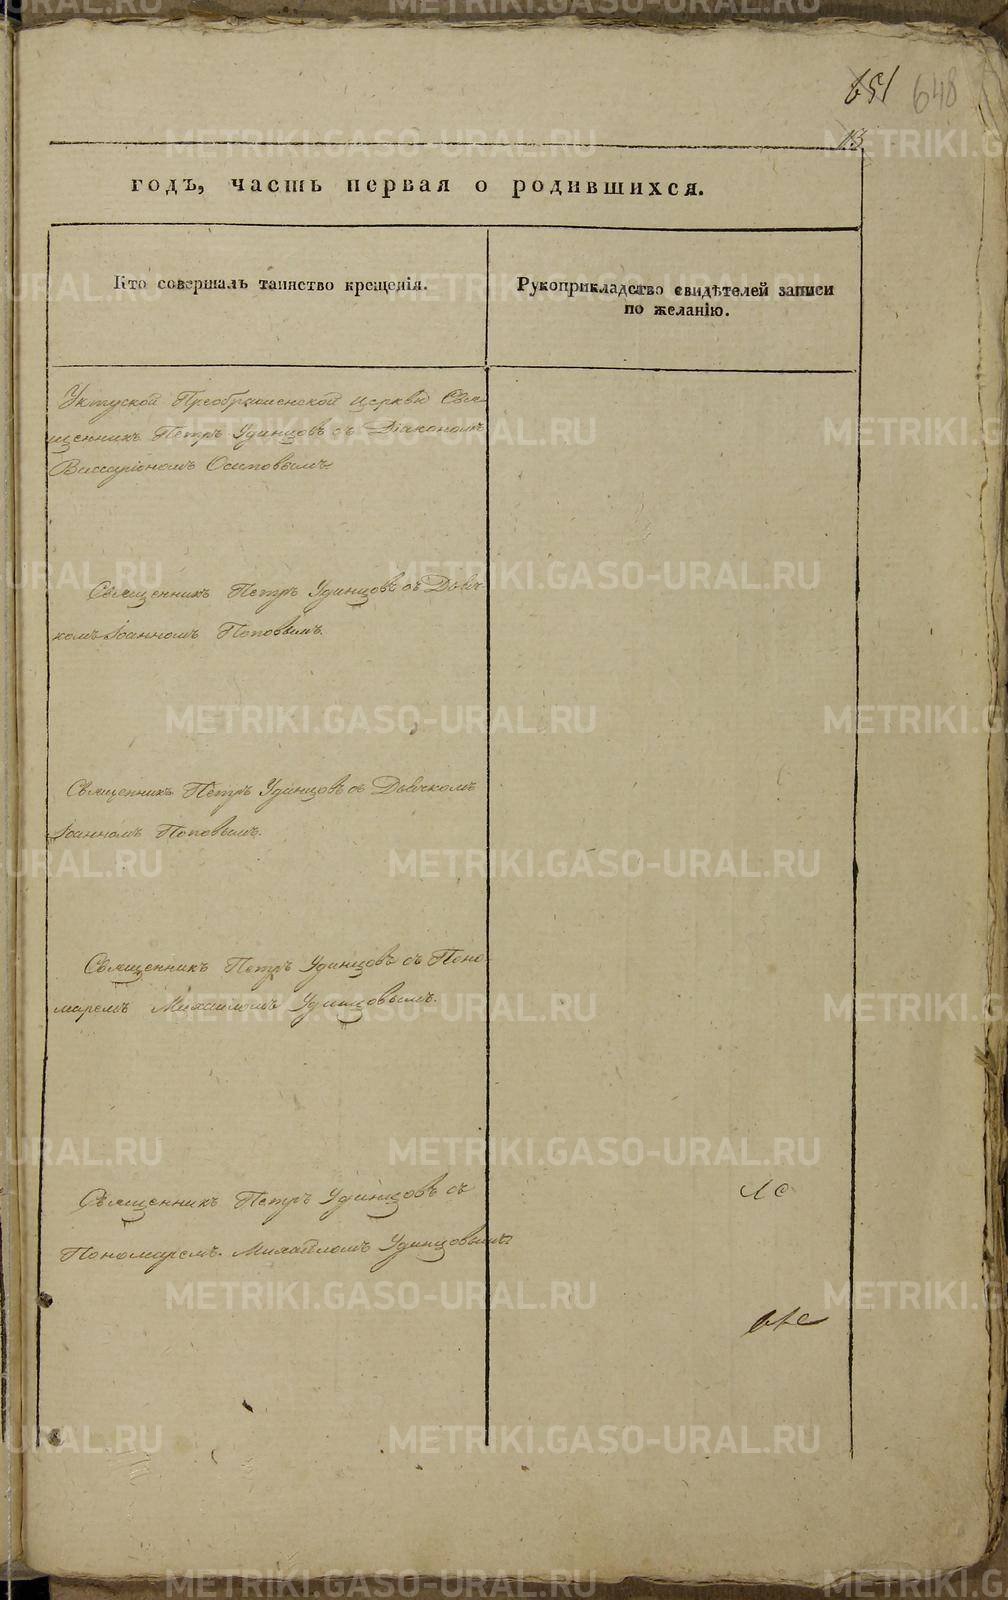 651 648
13
годъ, часть первая о родившихся.
Кто совершалъ таинство крещенія.
Рукоприкладство свидѣтелей записи
по желанію.
Уктуской Преображенской церкви Свя-
щенникъ Петръ Удинцовъ съ Діакономъ
Виссаріономъ Осиповымъ
Священникъ Петръ Удинцовъ съ Дьяч
комъ Іоанномъ Поповымъ.
Священникъ Петръ Удинцовъ съ Дьячкомъ
Іоанномъ Поповымъ.
Священникъ Петръ Удинцовъ съ Поно-
маремъ Михаиломъ Удинцовымъ.
Священникъ Петръ Удинцовъ съ
Пономаремъ Михайломъ Удинцовымъ
METRIKI.GASO-URAL.RU